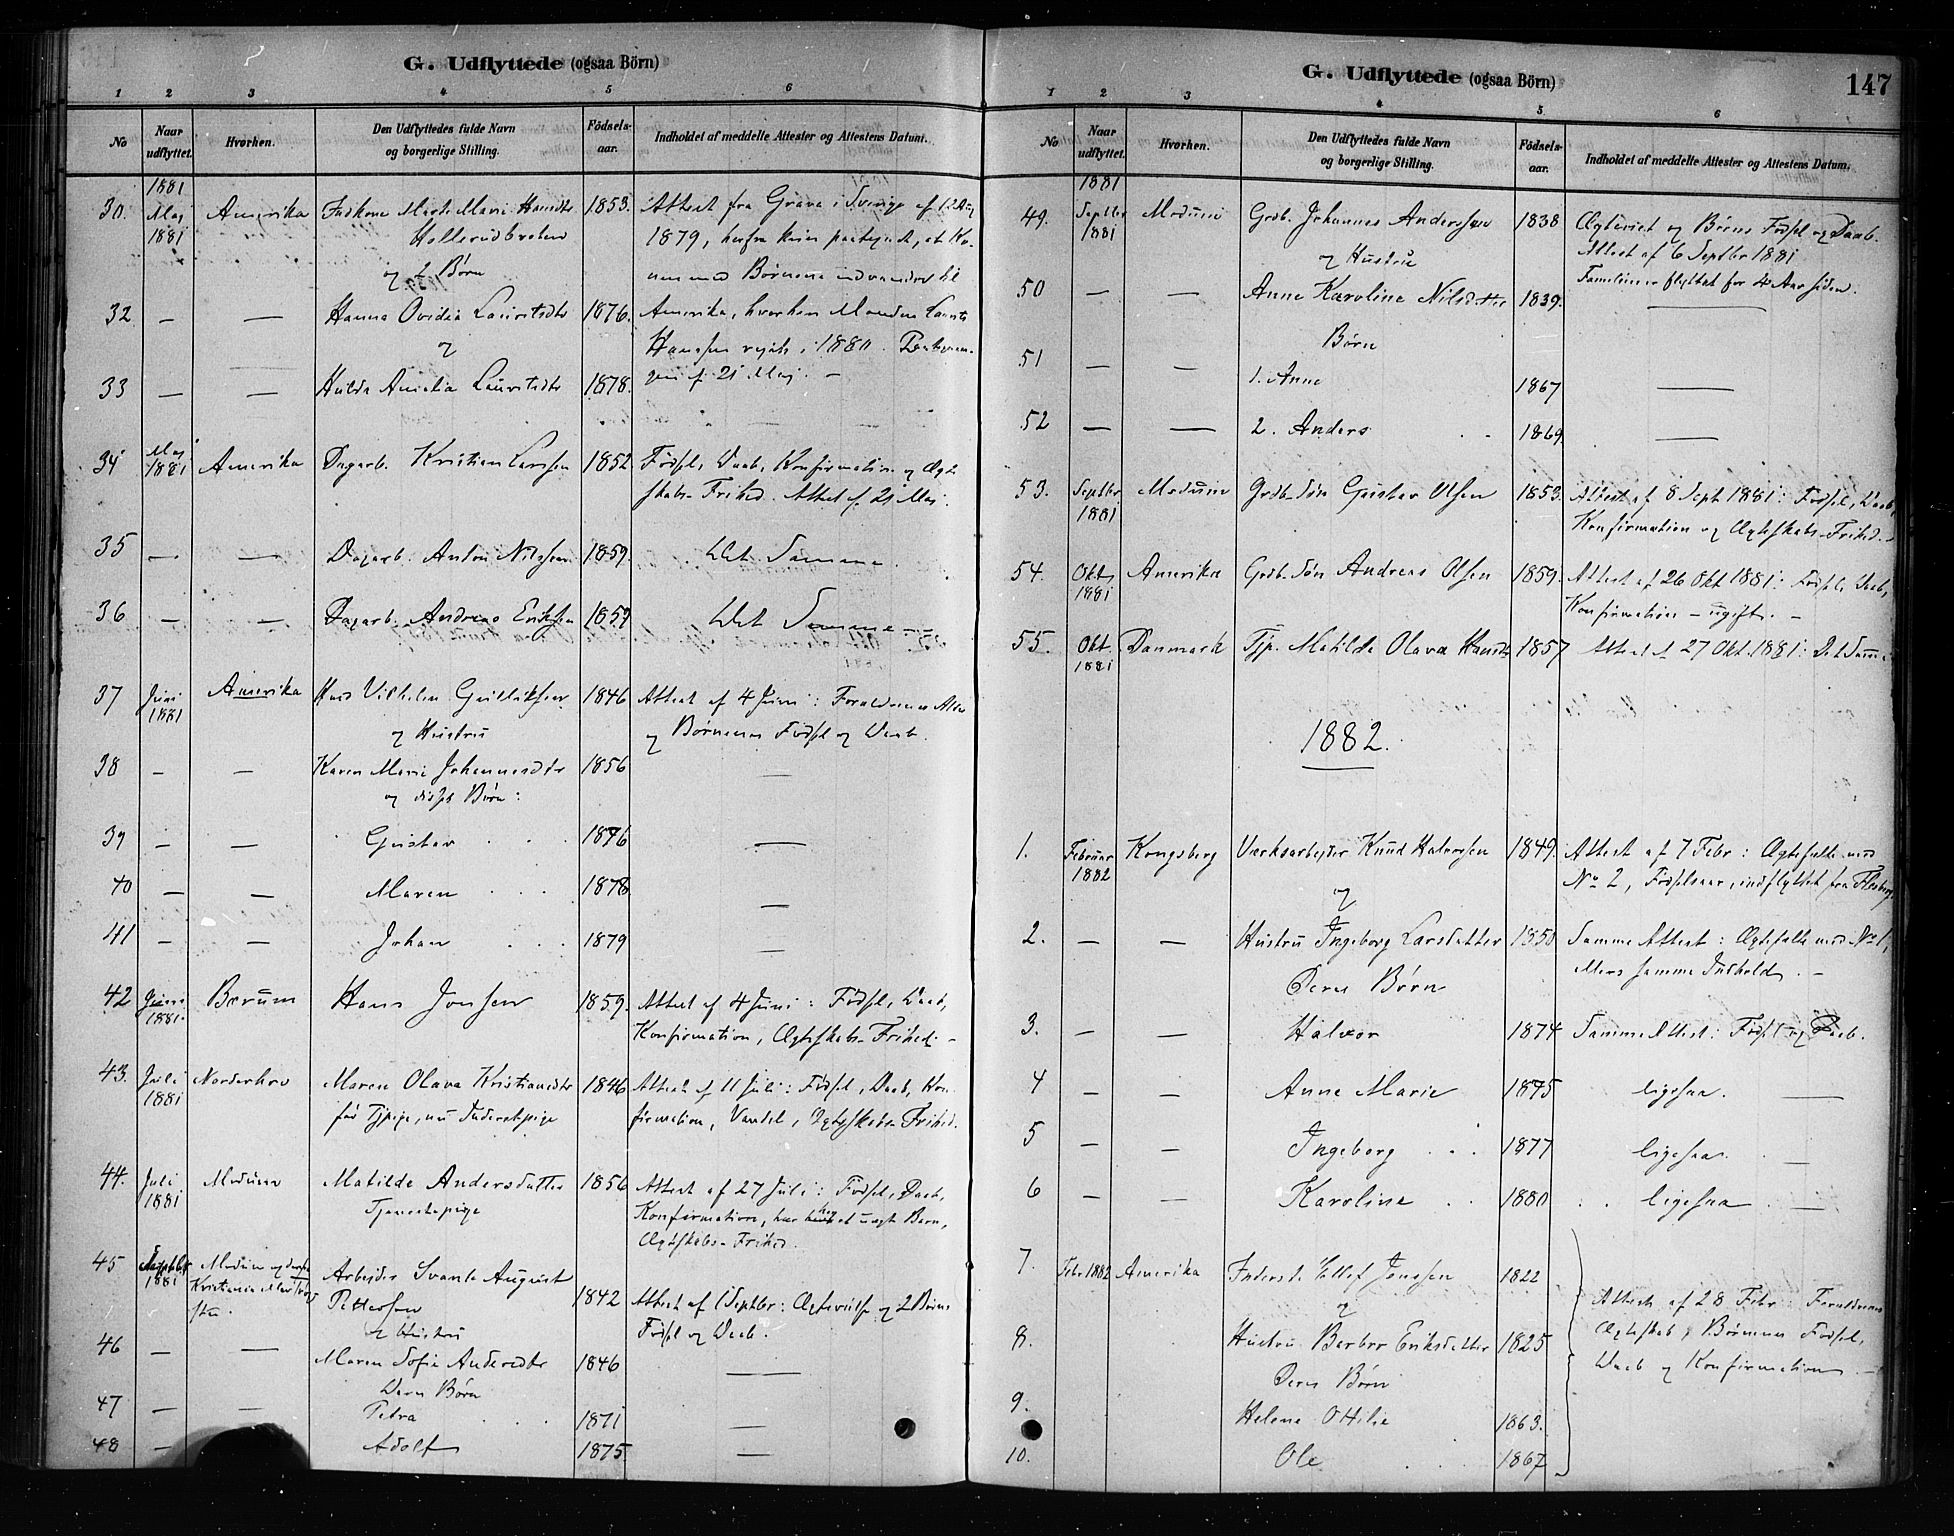 G. Udflyttede (ogsaa Börn)
1 2 3 4 5 6
No
Naar udflyttet.
Hvorhen.
Den Udflyttedes fulde Navn
og borgerlige Stilling.
Födsels-
aar.
Indholdet af meddelte Attester og Attestens Datum.
1881
30. Maj 1881 Amerika Marte Marie 1853. Attest fra Grava i Sverige af 12 Aug
1879, herfra kun paategnet, at Ko-
og 2 Børn
nen med Børnene indvandrer til
32 — — Hanna Ovidia Lauritsdtr 1876. Amerika, hvorhen Manden Laurits
og
Hanssen rejste i 1880. Paategnin-
33 — — Hulda Amelia Lauritsdtr 1878. gen af 21 Maj. —
34 Maj 1881 Amerika Dagarb. Kristian Larssen 1852 Fødsel, Daab, Konfirmation og Ægte-
skabs-Frihed. Attest af 21 Maj.
35 — — Dagarb. Anton Nilssen 1859. Det Samme.
36 — — Dagarb. Andreas Eriksen 1859 Det Samme —
37 Juni 1881 Amerika Vilhelm Gulliksen 1846 Attest af 4 Juni: Forældrenes Alder
og Hustru
og Børnenes Fødsel og Daab.
38 — — Karen Marie Johannesdtr 1856 —
og disses Børn:
39 — — Gustav 1876 —
40 — — Maren 1878 —
41 — — Johan 1879 —
42 Juni 1881. Bærum Hans Jonsen 1859. Attest af 4 Juni: Fødsel, Daab,
Konfirmation, Ægteskabs-Frihed. —
43. Juli 1881 Norderhov Maren Olava Kristiansdtr 1846 Attest af 11 Juli: Fødsel, Daab, Kon-
før Tjpige, nu Inderstpige
firmation, Vandel, Ægteskabs Frihed.
44. Juli 1881 Modum Matilde Andersdatter 1856 Attest af 27 Juli: Fødsel, Daab,
Tjenestepige
Konfirmation, har havt et uægt. Barn,
Ægteskabs-Frihed.
45 Septbr 1881 Modum og derfra
Kristiania eller
Arbejder Svante August
Pettersen 1842 Attest af 1 Septbr: Ægtevielse og 2 Børns
og Hustru
Fødsel og Daab.
46 — — Maren Sofie Andersdtr 1846 —
Deres Børn
47 — — Petra 1871 —
48 — Adolf 1875 —
G. Udflyttede (ogsaa Börn)
147
1 2 3 4 5 6
No
Naar udflyttet.
Hvorhen.
Den Udflyttedes fulde Navn
og borgerlige Stilling.
Födsels-
aar.
Indholdet af meddelte Attester og Attestens Datum.
1881
49. Septbr 1881 Modum Grdb. Johannes Anderssen 1838 Ægteviet og Børns Fødsel og Daab.
og Hustru
Attest af 6 Septbr 1881
Familien er flyttet for 4 Aar siden.
50 — — Anne Karoline Nilsdatter 1839. —
Børn
51 — — 1. Anne 1867 —
52 — — 2. Anders 1869. —
53. Septbr 1881 Modum Grdb. Søn Gustav Olsen 1853. Attest af 8 Sept 1881: Fødsel, Daab,
Konfirmation og Ægteskabs-Frihed. —
54. Okt. 1881 Amerika Grdb. Søn Andreas Olsen 1859. Attest af 26 Okt 1881: Fødsel, Daab,
Konfirmation — ugift. —
55. Okt. 1881 Danmark Tjp. Matilde Olava Hansdtr 1857 Attest af 27 Okt. 1881: Det Samme
1882.
1. Februar 1882 Kongsberg Værksarbejder Knud Halvorsen 1849. Attest af 7 Febr: Ægtefælle med
og
No 2, Fødselsaar, indflyttet fra Flesberg.
2. — — Hustru Ingeborg Larsdatter 1850 Samme Attest: Ægtefælle med No 1,
Deres Børn
Mers samme Indhold. —
3. — — Halvor 1874 Samme Attest: Fødsel og Daab.
4 — — Anne Marie 1875 ligesaa. —
5 — — Ingeborg 1877 ligesaa. —
6 — — Karoline 1880 ligesaa —
7. Febr 1882 Amerika Inderst. Ellef Jonssen 1822
og
Attest af 28 Febr: Forældrenes
8. Hustru Barbro Eriksdatter 1825 Ægteskab, Børnenes Fødsel,
Deres Børn
Daab og Konfirmation —
9. Helene Otilie 1863.
10. Ole 1867